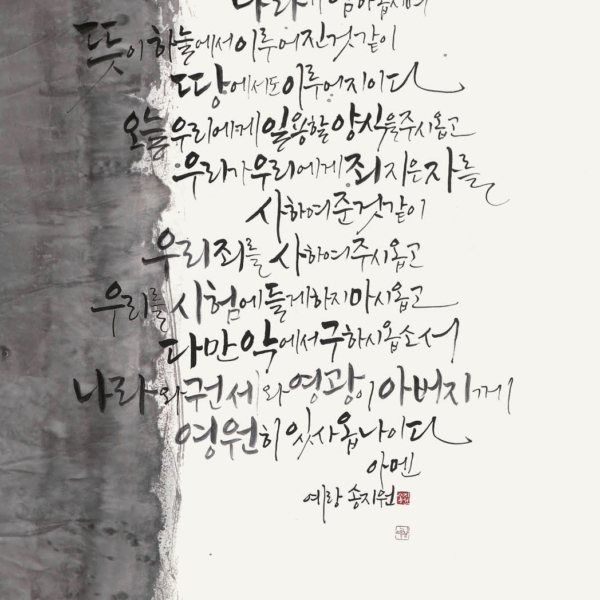 나라가 임하옵시며
뜻이 하늘에서 이루어진것 같이
땅에서도 이루어지이다
오늘 우리에게 일용할 양식을 주시옵고
우리가 우리에게 죄 지은 자를
사하여 준것 같이
우리 죄를 사하여 주시옵고
우리를 시험에 들게하지 마시옵고
다만 악에서 구하시옵소서
나라와 권세와 영광이 아버지께
영원히 있사옵나이다
아멘
예랑 송지원